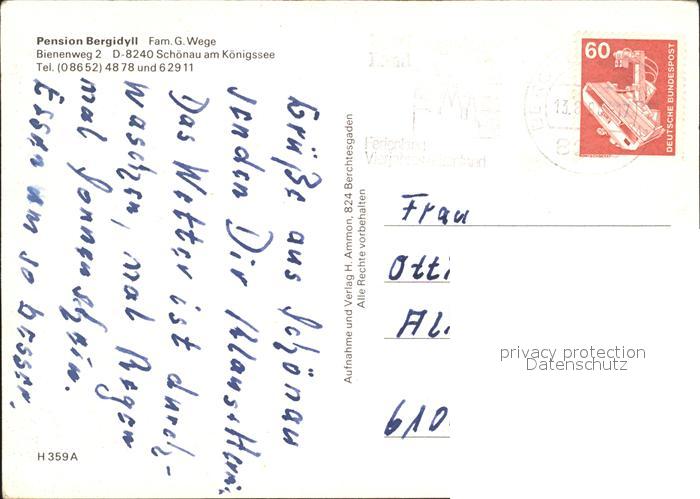 Pension Bergidyll Fam. G. Wege
Bienenweg 2 D-8240 Schönau am Königssee
Tel. (08652) 4878 und 62911
Grüße aus Schönau
senden Dir Klaus + Heni.
Das Wetter ist durch-
waschen, mal Regen
mal Sonnenschein.
Essen um so besser.
H 359 A
Aufnahme und Verlag H. Ammon, 824 Berchtesgaden
Alle Rechte vorbehalten
60
DEUTSCHE BUNDESPOST
13.
Frau
Otti
Al
610
privacy protection
Datenschutz